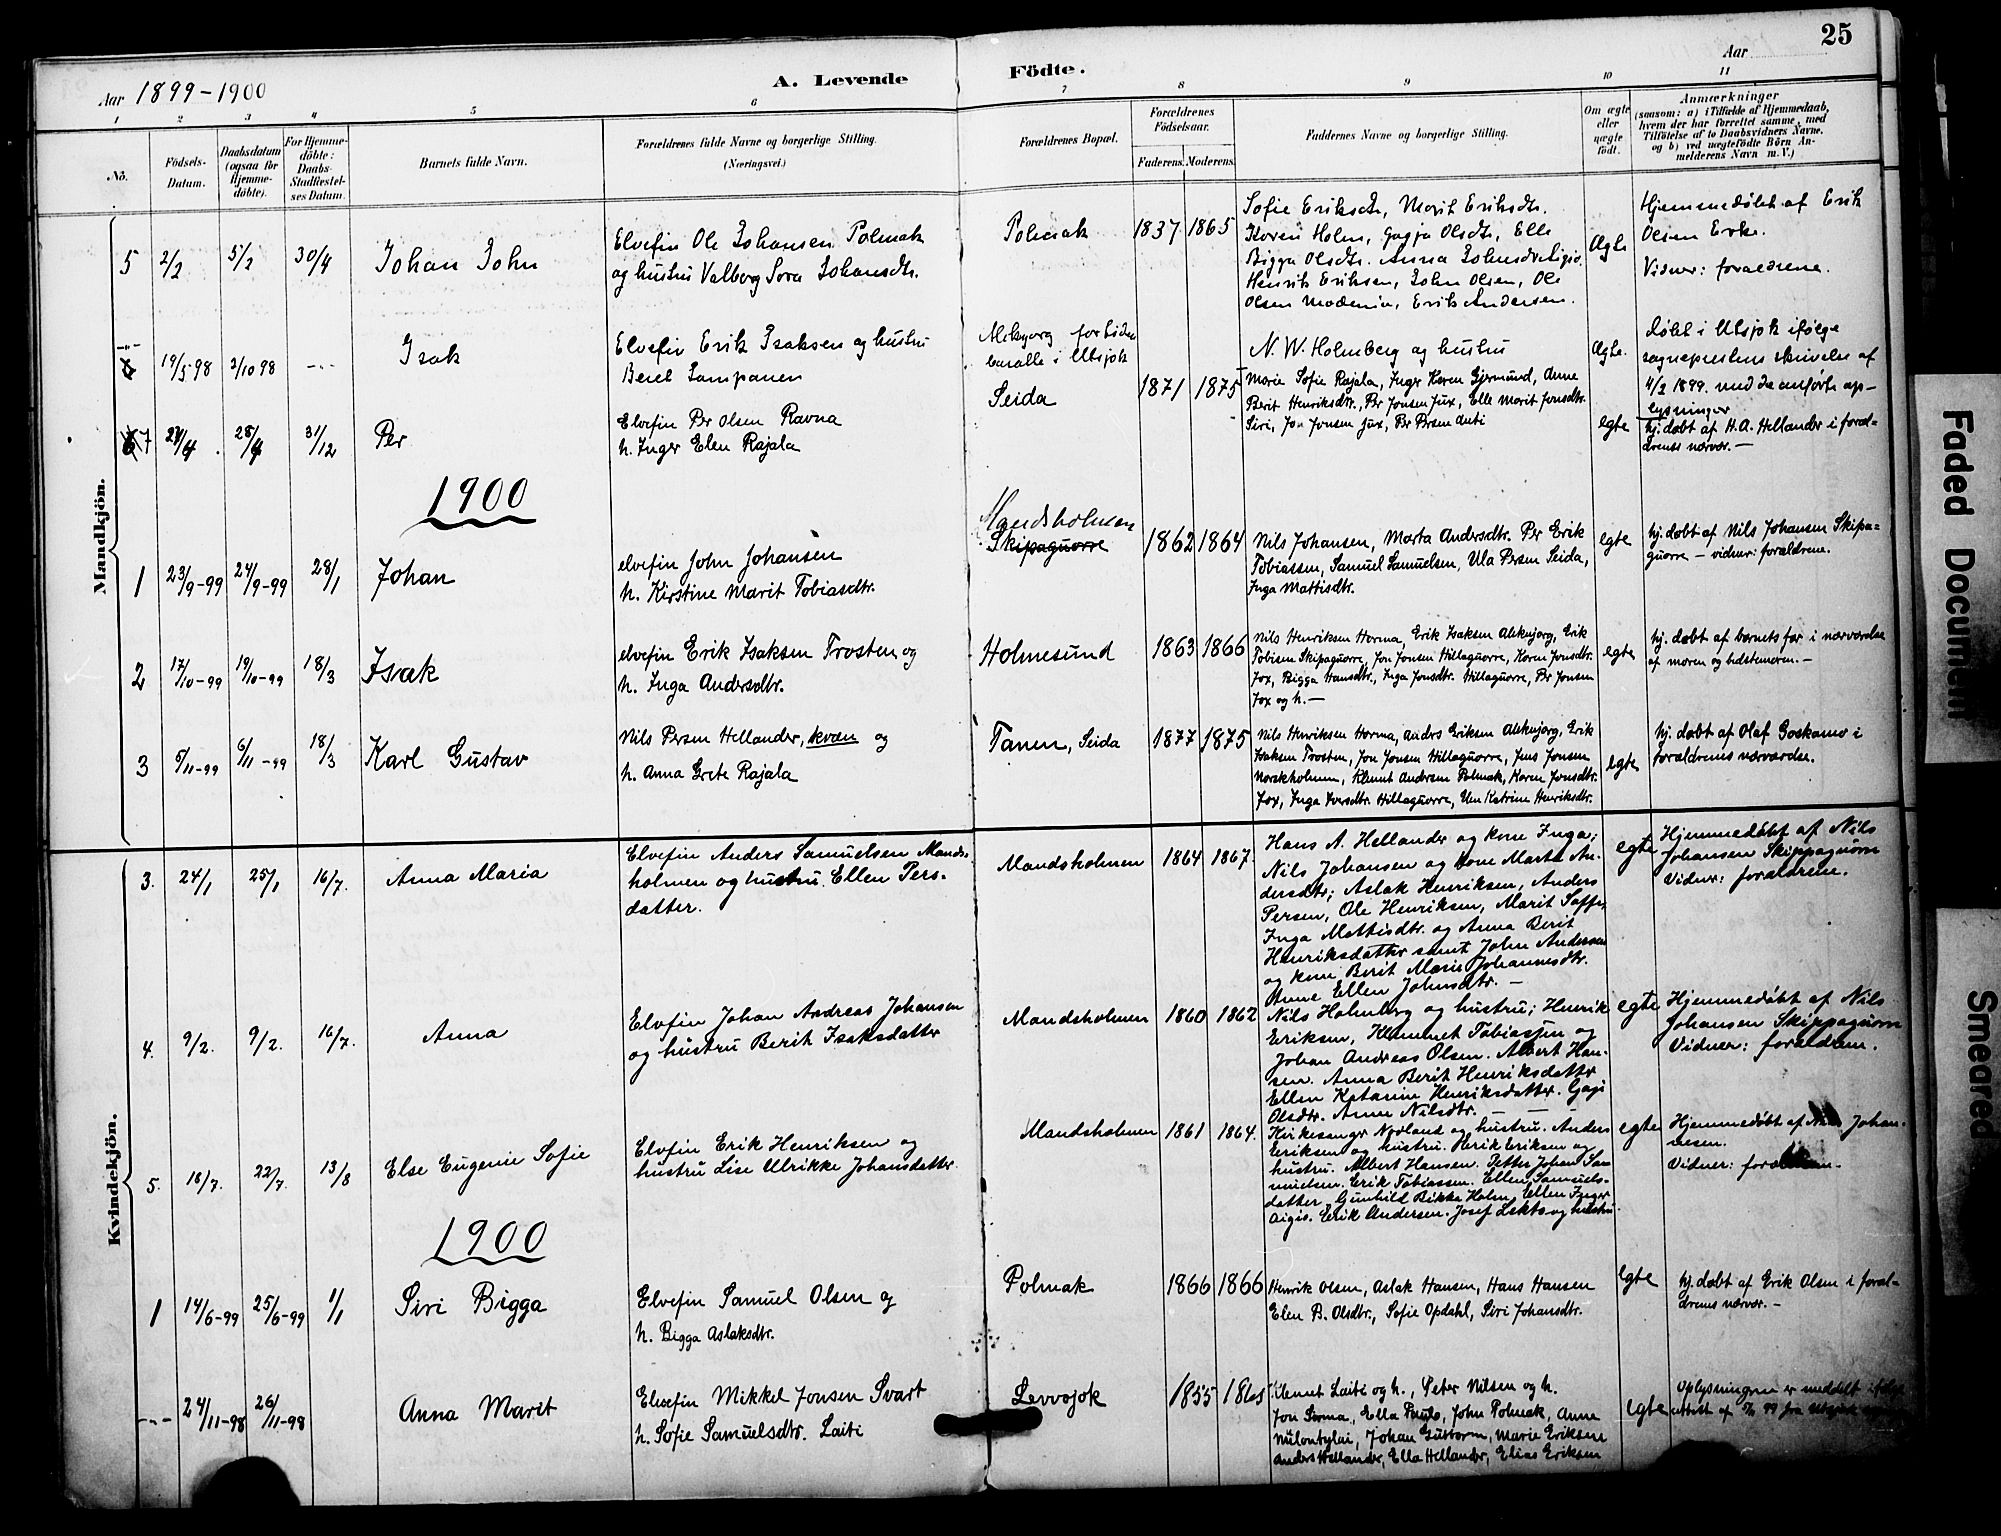 25
Aar 1899-1900
A. Levende Födte.
Aar
1 2 3 4 5 6 7 8 9 10 11
Nö.
Födsels-Datum.
Daabsdatum (ogsaa for Hjemme-döbte).
For Hjemme-döbte: Daabs-Stadfæstel-ses Datum.
Barnets fulde Navn.
Forældrenes fulde Navne og borgerlige Stilling. (Næringsvei.)
Forældrenes Bopæl.
Forældrenes Födselsaar.
Faderens. Moderens.
Faddernes Navne og borgerlige Stilling.
Om ægte eller uægte födt.
Anmærkninger
(saasom: a) i Tilfælde af Hjemmedaab, hvem der har forrettet samme, med Tilföielse af to Daabsvidners Navne, og b) ved uægtefödte Börn Anmelderens Navn m. V.)
Mandkjön.
5 2/2 5/2 30/4 Johan John
Elvefin Ole Johansen Polmak
og hustru Valborg Sora Johansdtr.
Polmak 1837 1865
Sofie Eriksdtr, Marit Eriksdtr.
Karen Holm, Gagja Olsdtr, Elle
Bigga Olsdtr. Anna
Henrik Eriksen, John Olsen, Ole
Olsen Erik Andersen.
Ægte
Hjemmedøbt af Erik
Olsen Erke.
Vidner: forældrene.
19/5 98 2/10 98 --- Isak
Elvefin Erik Isaksen og hustru
Beret
i Utsjok
N. W. Holmberg og hustru
Ægte.
døbt i Utsjok ifølge
sognepræstens skrivelse af
4/2 1899. med de anførte op-
lysninger
7 28/4 31/12 Per
Elvefin Per Olsen Ravna
h. Inger Elen Rajala
Seida 1871 1875
Marie Sofie Rajala, Inger Karen Gjermund, Anne
Berit Henriksdtr., Per Jonsen Jux, Elle Marit Jonsdtr.
Siri, Jon Jonsen Jux, Per Persen Anti
egte
hj. døbt af H. A. Hellander i foræl-
drenes nærvær. —
1900
1 23/9-99 24/9-99 28/1 Johan
elvefin John Johansen
h. Kirstine Marit Tobiasdtr.
Mandsholmen
Skipaguorre
1862 1864
Nils Johansen, Marta Andersdtr. Per Erik
Tobiassen, Samuel Samuelsen, Ula Persen Seida,
Inga Mattisdtr.
egte
hj. døbt af Nils Johansen Skipa-
guorre — vidner: forældrene.
2 17/10-99 19/10-99 18/3 Isak
elvefin Erik Isaksen Trosten og
h. Inga Andersdtr.
Holmesund 1863 1866
Nils Henriksen Horma, Erik Isaksen Aleknjarg, Erik
Tobisen Skipaguorre, Jon Jonsen Hillaguorre, Karen Jonsdtr.
Jox, Bigga Hansdtr., Inga Jonsdtr. Hillaguorre, Per Jonsen
Jox og h. —
egte
hj. døbt af barnets far i nærværelse
af moren og bedstemoren. —
3 5/11-99 6/11-99 18/3 Karl Gustav
Nils Persen Hellander, kvæn og
h. Anna Grete Rajala
Tanen, Seida 1877 1875
Nils Henriksen Horma, Anders Eriksen Aleknjarg, Erik
Isaksen Trosten, Jon Jonsen Hillaguorre, Jens Jonsen
Norskholmen, Klemet Andersen Polmak, Karen Jonsdtr.
Jox, Inga Iversdtr. Hillaguorre, Katrine Henriksdtr.
egte
hj. døbt af Olaf Goskamo i
forældrenes nærværelse.
Kvindekjön.
3. 24/1 25/1 16/7. Anna Maria
Elvefin Anders Samuelsen Mands-
holmen og hustru Ellen Pers-
datter.
Mandsholmen 1864 1867.
Hans A. Hellander og kone Inga;
Nils Johansen og kone Marta An-
dersdtr; Aslak Henriksen, Anders
Persen, Ole Henriksen, Marit
Inga Mattisdtr. og Anna Berit
Henriksdatter samt John Andersen
og kone Berit Marie Johannesdtr.
Anne Ellen Johnsdtr. —
egte
Hjemmedøbt af Nils
Johansen Skippaguorre
Vidner: forældrene.
4. 9/2. 9/2. 16/7. Anna
Elvefin Johan Andreas Johansen
og hustru Berit Isaksdatter
Mandsholmen 1860 1862
Nils Holmberg og hustru; Henrik
Eriksen, Klemmet Tobiassen og
Johan Andreas Olsen. Albert Han-
sen. Anna Berit Henriksdatter
Ellen Katarine Henriksdatter. Gagi
Olsdtr. Anne Nilsdtr.
egte
Hjemmedøbt af Nils
Johansen Skippaguorre
Vidner: forældrene.
5. 18/7. 22/7. 13/8 Else Eugenie Sofie
Elvefin Erik Henriksen og
hustru Lise Ulrikke Johansdatter.
Mandsholmen 1861 1864.
Kirkesanger Nodland og hustru. Anders
Eriksen og hustru. Henrik Eriksen og
hustru. Albert Hansen. Petter Johan Sa-
muelsen. Erik Tobiassen. Ellen Samuels-
datter Gunhild Bikka Holm, Ellen Inger
Aigis. Erik Andersen. Josef og hustru.
egte
Hjemmedøbt af Nils Johan-
nesen.
Vidner: forældrene.
1900
1 14/6-99 25/6-99 1/1 Siri Bigga
Elvefin Samuel Olsen og
h. Bigga Aslaksdtr.
Polmak 1866 1866
Henrik Olsen, Aslak Hansen, Hans Hansen
Elen B. Olsdtr., Sofie Opdahl, Siri Johansdtr.
egte
hj. døbt af Erik Olsen i foræl-
drenes nærvær. —
--- 24/11-98 26/11-98 Anna Marit
Elvefin Mikkel Jonsen Svart
h. Sofie Samuelsdtr. Laiti
Levvojok 1855 1865
Klemet Laiti og h., Peter Nilsen og h.
Jon Sirma, Ella John Polmak, Anne
Johan Guttorm, Marie Eriksen
Anders Hellander, Ella Hellander, Elias Eriksen
egte
Oplysningen er meddelt ifølge
attest af 99 fra Utsjok
Faded Document
Smeared